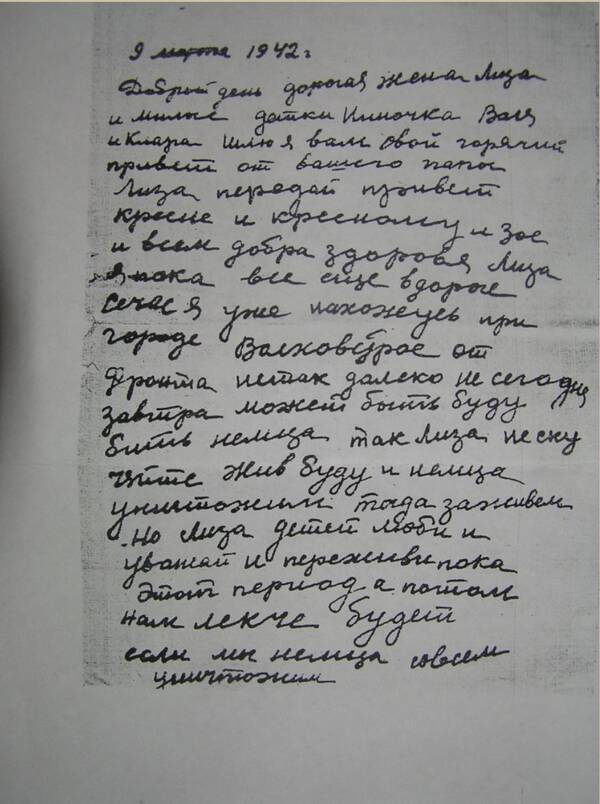 9 марта 1942 г
Добрый день дорогая жена Лиза
и милые датки Ниночка Валя
и Клара шлю я вам свой горячий
привет от вашего папы
Лиза передай привет
кресне и кресному и Зое
и всем добра здоровья Лиза
я пока все еще вдорое
сечас я уже нахожусь при
городе Волховстрое от
фронта нетак далеко не сегодня
завтра может быть буду
бить немца так Лиза неску
чайте жив буду и немца
уничтожим тогда заживем
Но Лиза детей люби и
уважай и переживи пока
этот период а потом
нам лекче будет
если мы немца совсем
уничтожим